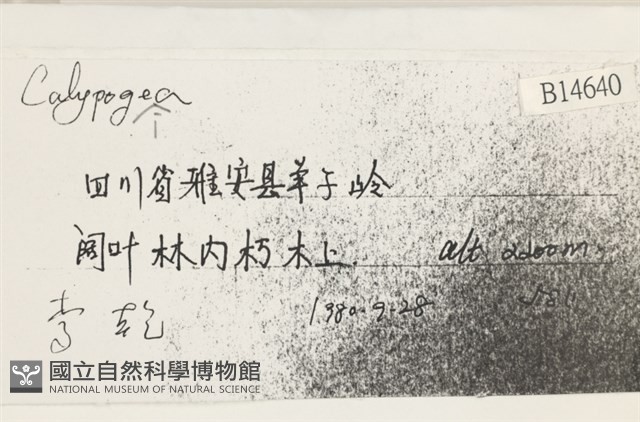 Calypogea
B14640
四川省雅安县羊子岭
阔叶林内朽木上. alt 2200m.
李乾 1980.9.28
國立自然科學博物館
NATIONAL MUSEUM OF NATURAL SCIENCE